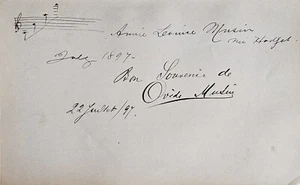 Annie Louise Musin
née Hodges.
July 1897.
Bon Souvenir de
Ovide Musin
22 Juillet/97.